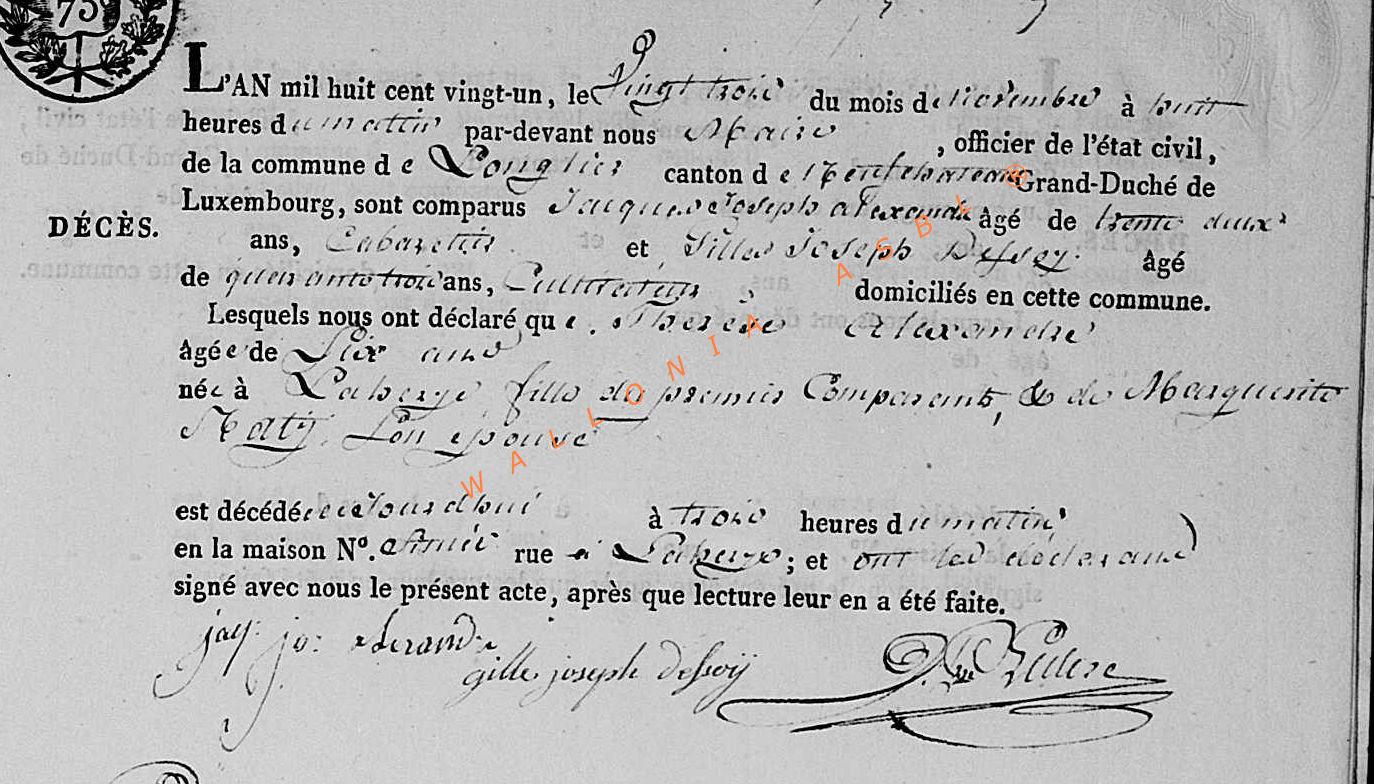 75
L'AN mil huit cent vingt-un, le Vingt trois du mois de Novembre à huit
heures du matin par-devant nous Maire , officier de l'état civil,
de la commune de Longlier canton de Neufchateau Grand-Duché de
Luxembourg, sont comparus Jacques Joseph alexandre âgé de trente deux
DÉCÈS.
ans, Cabaretier et Gilles Joseph Dessoy âgé
de quarante trois ans, Cultivateur , domiciliés en cette commune.
Lesquels nous ont déclaré que Therese Alexandre
âgée de Six ans
née à Laherge, fille du premier Comparant, & de Marguerite
Maty. Son epouse
est décédée cejourdhui à trois heures du matin
en la maison No. rue à Laherge ; et ont les déclarans
signé avec nous le présent acte, après que lecture leur en a été faite.
jacq. jo: alexandre
gille joseph dessoÿ
WALLONIA ASBL ®